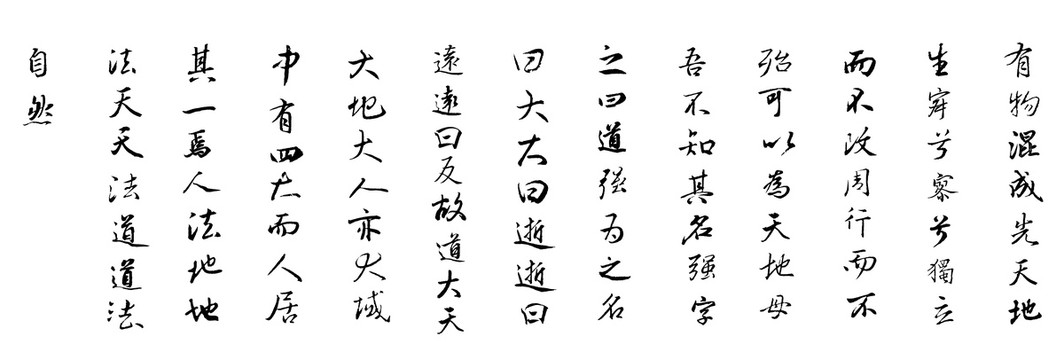 有物混成先天地
生寂兮寥兮獨立
而不改周行而不
殆可以為天地母
吾不知其名强字
之曰道强为之名
曰大大曰逝逝曰
遠遠曰反故道大天
大地大人亦大域
中有四大而人居
其一焉人法地地
法天天法道道法
自然